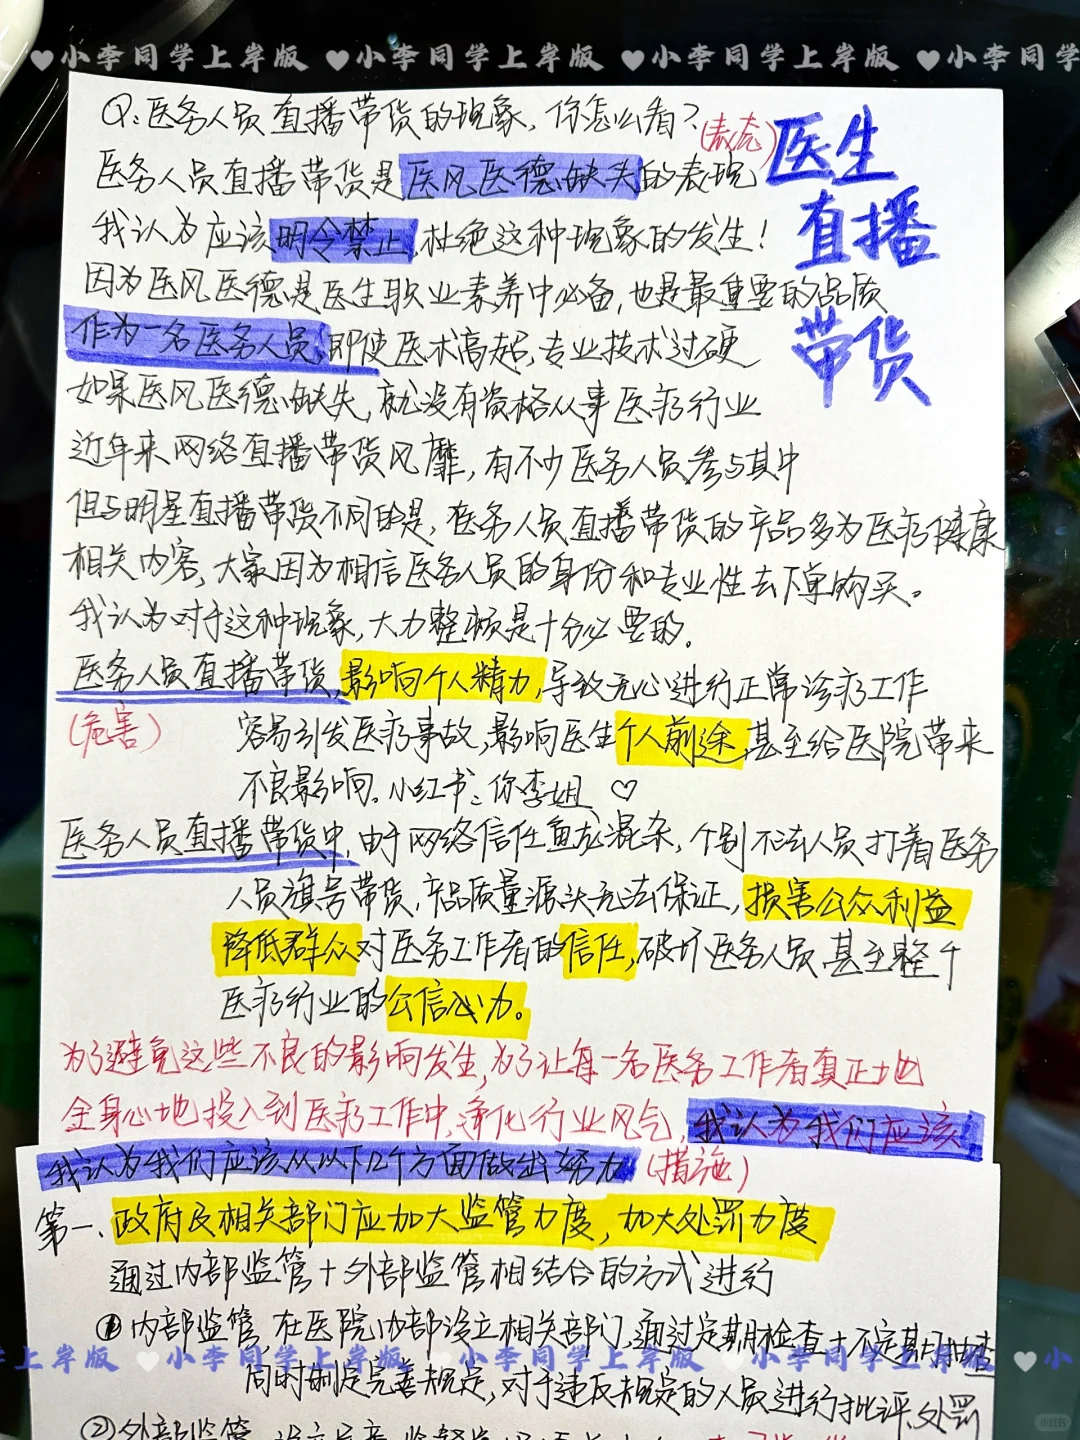 ♥小李同学上岸版 ♥小李同学上岸版 ♥小李同学上岸版 ♥小李同学
Q:医务人员直播带货的现象,你怎么看?
(表态)
医生
直播
带货
医务人员直播带货是医风医德缺失的表现
我认为应该明令禁止,杜绝这种现象的发生!
因为医风医德是医生职业素养中必备,也是最重要的品质
作为一名医务人员,即使医术高超,专业技术过硬
如果医风医德缺失,就没有资格从事医疗行业
近年来网络直播带货风靡,有不少医务人员参与其中
但与明星直播带货不同的是,医务人员直播带货的产品多为医疗健康
相关内容,大家因为相信医务人员的身份和专业性去下单购买。
我认为对于这种现象,大力整顿是十分必要的。
医务人员直播带货,影响个人精力,导致无心进行正常诊疗工作
(危害)
容易引发医疗事故,影响医生个人前途,甚至给医院带来
不良影响。小红书:你李姐 ♡
医务人员直播带货中,由于网络信任鱼龙混杂,个别不法人员打着医务
人员旗号带货,产品质量源头无法保证,损害公众利益
降低群众对医务工作者的信任,破坏医务人员甚至整个
医疗行业的公信心力。
为了避免这些不良的影响发生,为了让每一名医务工作者真正地
全身心地投入到医疗工作中,净化行业风气,我认为我们应该
我认为我们应该从以下12个方面做出努力 (措施)
第一、政府及相关部门应加大监管力度,加大处罚力度
通过内部监管+外部监管相结合的方式进行
①内部监管,在医院内部设立相关部门,通过定期检查+不定期抽查
学上岸版 ♥小李同学上岸版 ♥小李同学上岸版 ♥小
同时制定完善规定,对于违反规定的人员进行批评,处罚
②外部监管
小红书